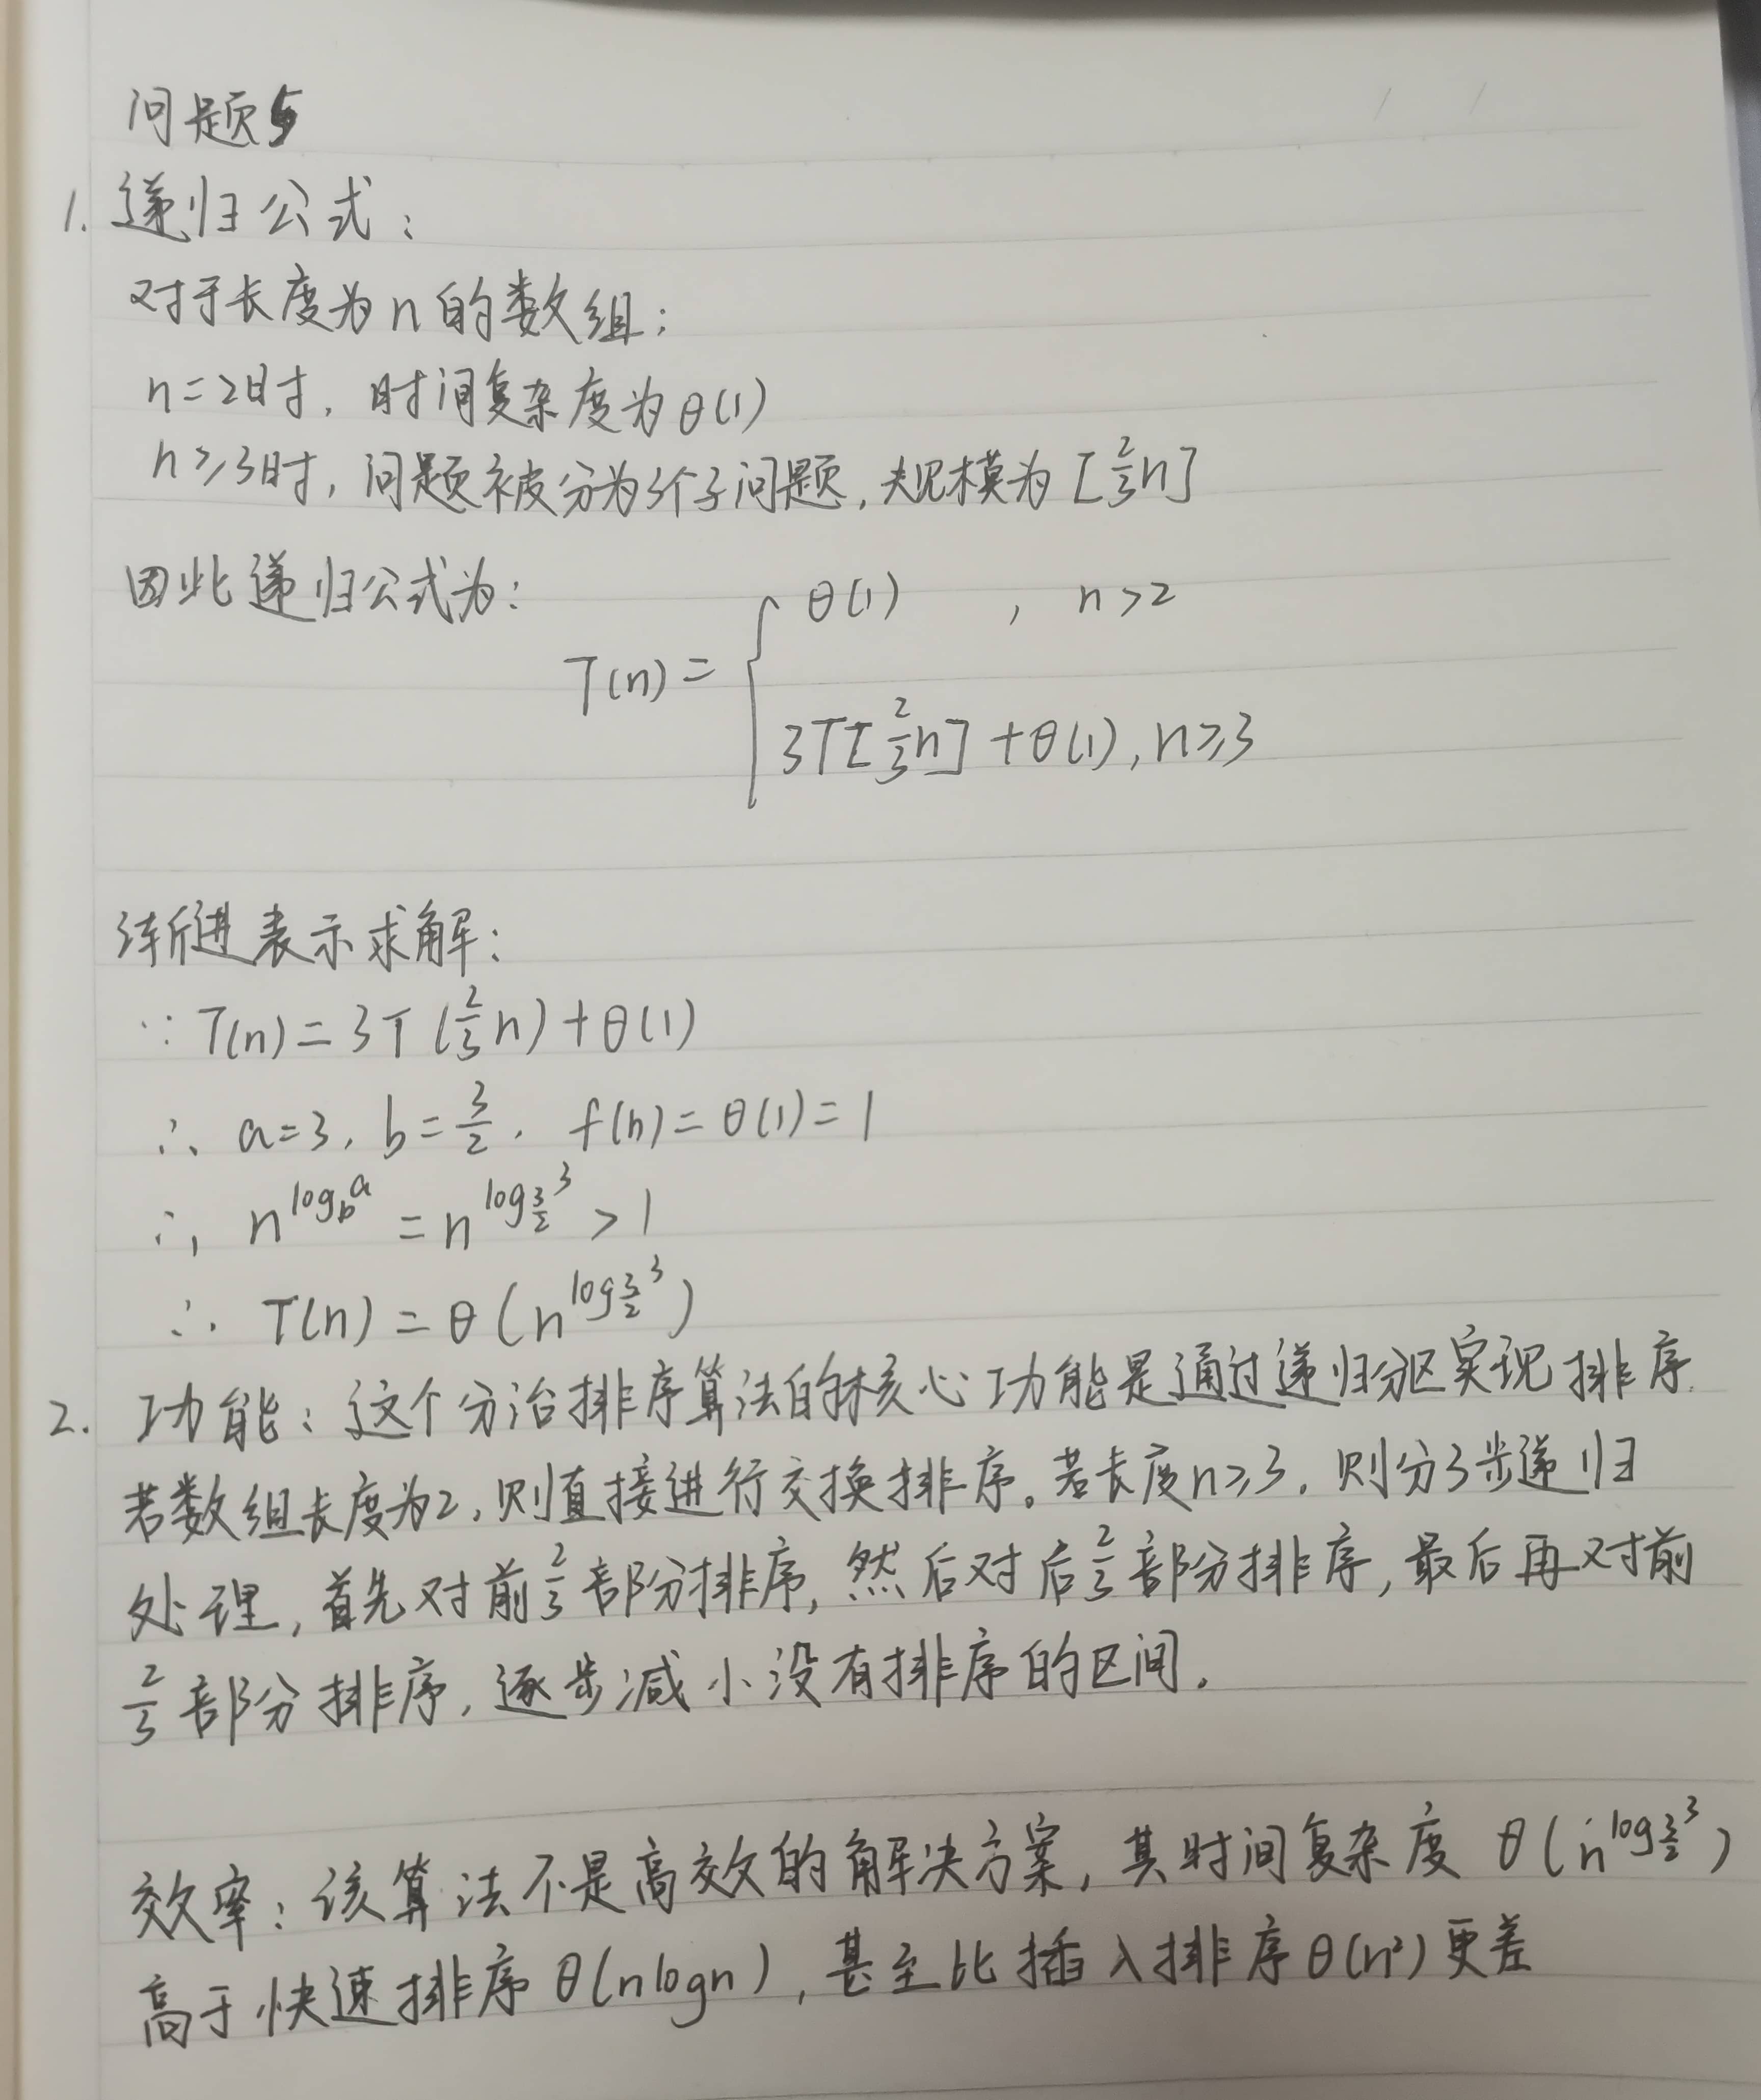 问题5
1. 递归公式：
对于长度为n的数组：
n=2时，时间复杂度为θ(1)
n≥3时，问题被分为3个子问题，规模为[2/3n]
因此递归公式为：
T(n) = { θ(1) , n>2
3T[2/3n] + θ(1), n≥3
渐进表示求解：
∵ T(n) = 3T(2/3n) + θ(1)
∴ a=3, b=3/2, f(n)=θ(1)=1
∴ n^(log_b a) = n^(log_(3/2) 3) > 1
∴ T(n) = θ(n^(log_(3/2) 3))
2. 功能：这个分治排序算法的核心功能是通过递归分区实现排序.
若数组长度为2，则直接进行交换排序。若长度n≥3，则分3步递归
处理，首先对前2/3部分排序，然后对后2/3部分排序，最后再对前
2/3部分排序，逐步减小没有排序的区间.
效率：该算法不是高效的解决方案，其时间复杂度 θ(n^(log_(3/2) 3))
高于快速排序θ(nlogn)，甚至比插入排序θ(n²)更差